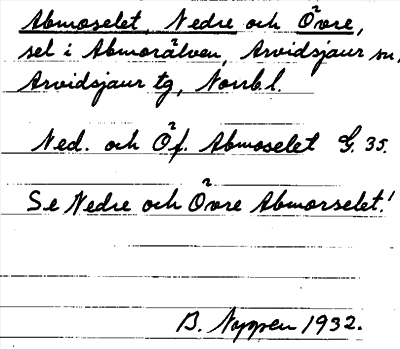 Abmoselet, Nedre och Övre,
sel i Abmorälven, Arvidsjaur sn,
Arvidsjaur tg, Norrb. l.
Ned. och Öf. Abmoselet G. 35.
Se Nedre och Övre Abmorselet!
B. Noppen 1932.